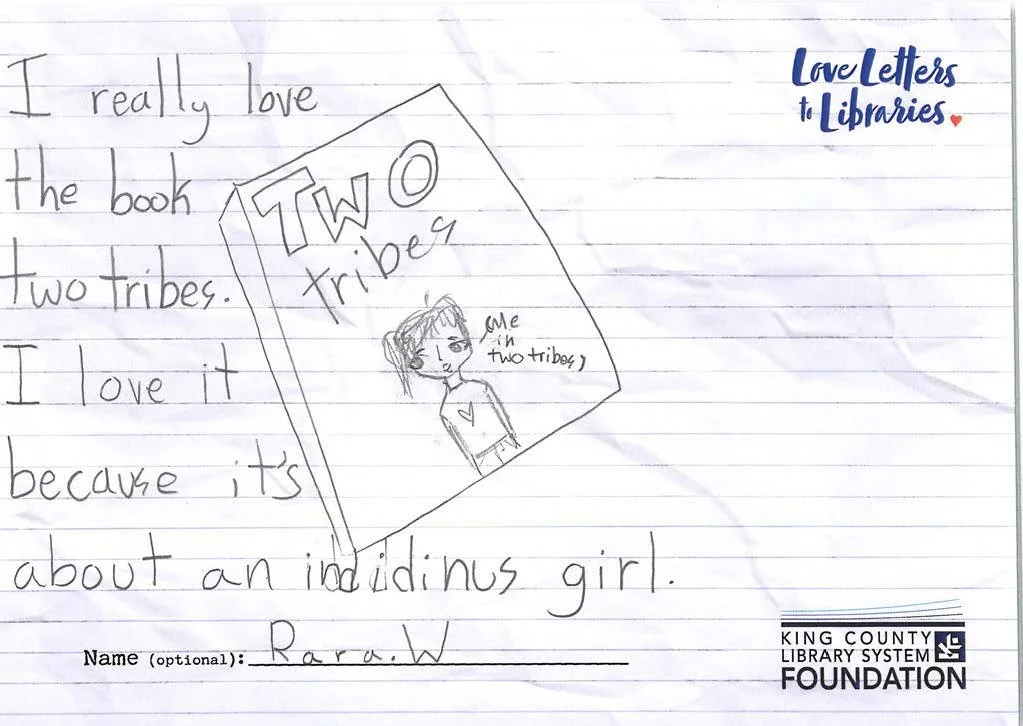 I really love
the book
two tribes.
I love it
because it's
about an indidinus girl.
TWO
tribes
(Me
in
two tribes)
Love Letters
to Libraries.
Name (optional): Rara.W
KING COUNTY
LIBRARY SYSTEM
FOUNDATION